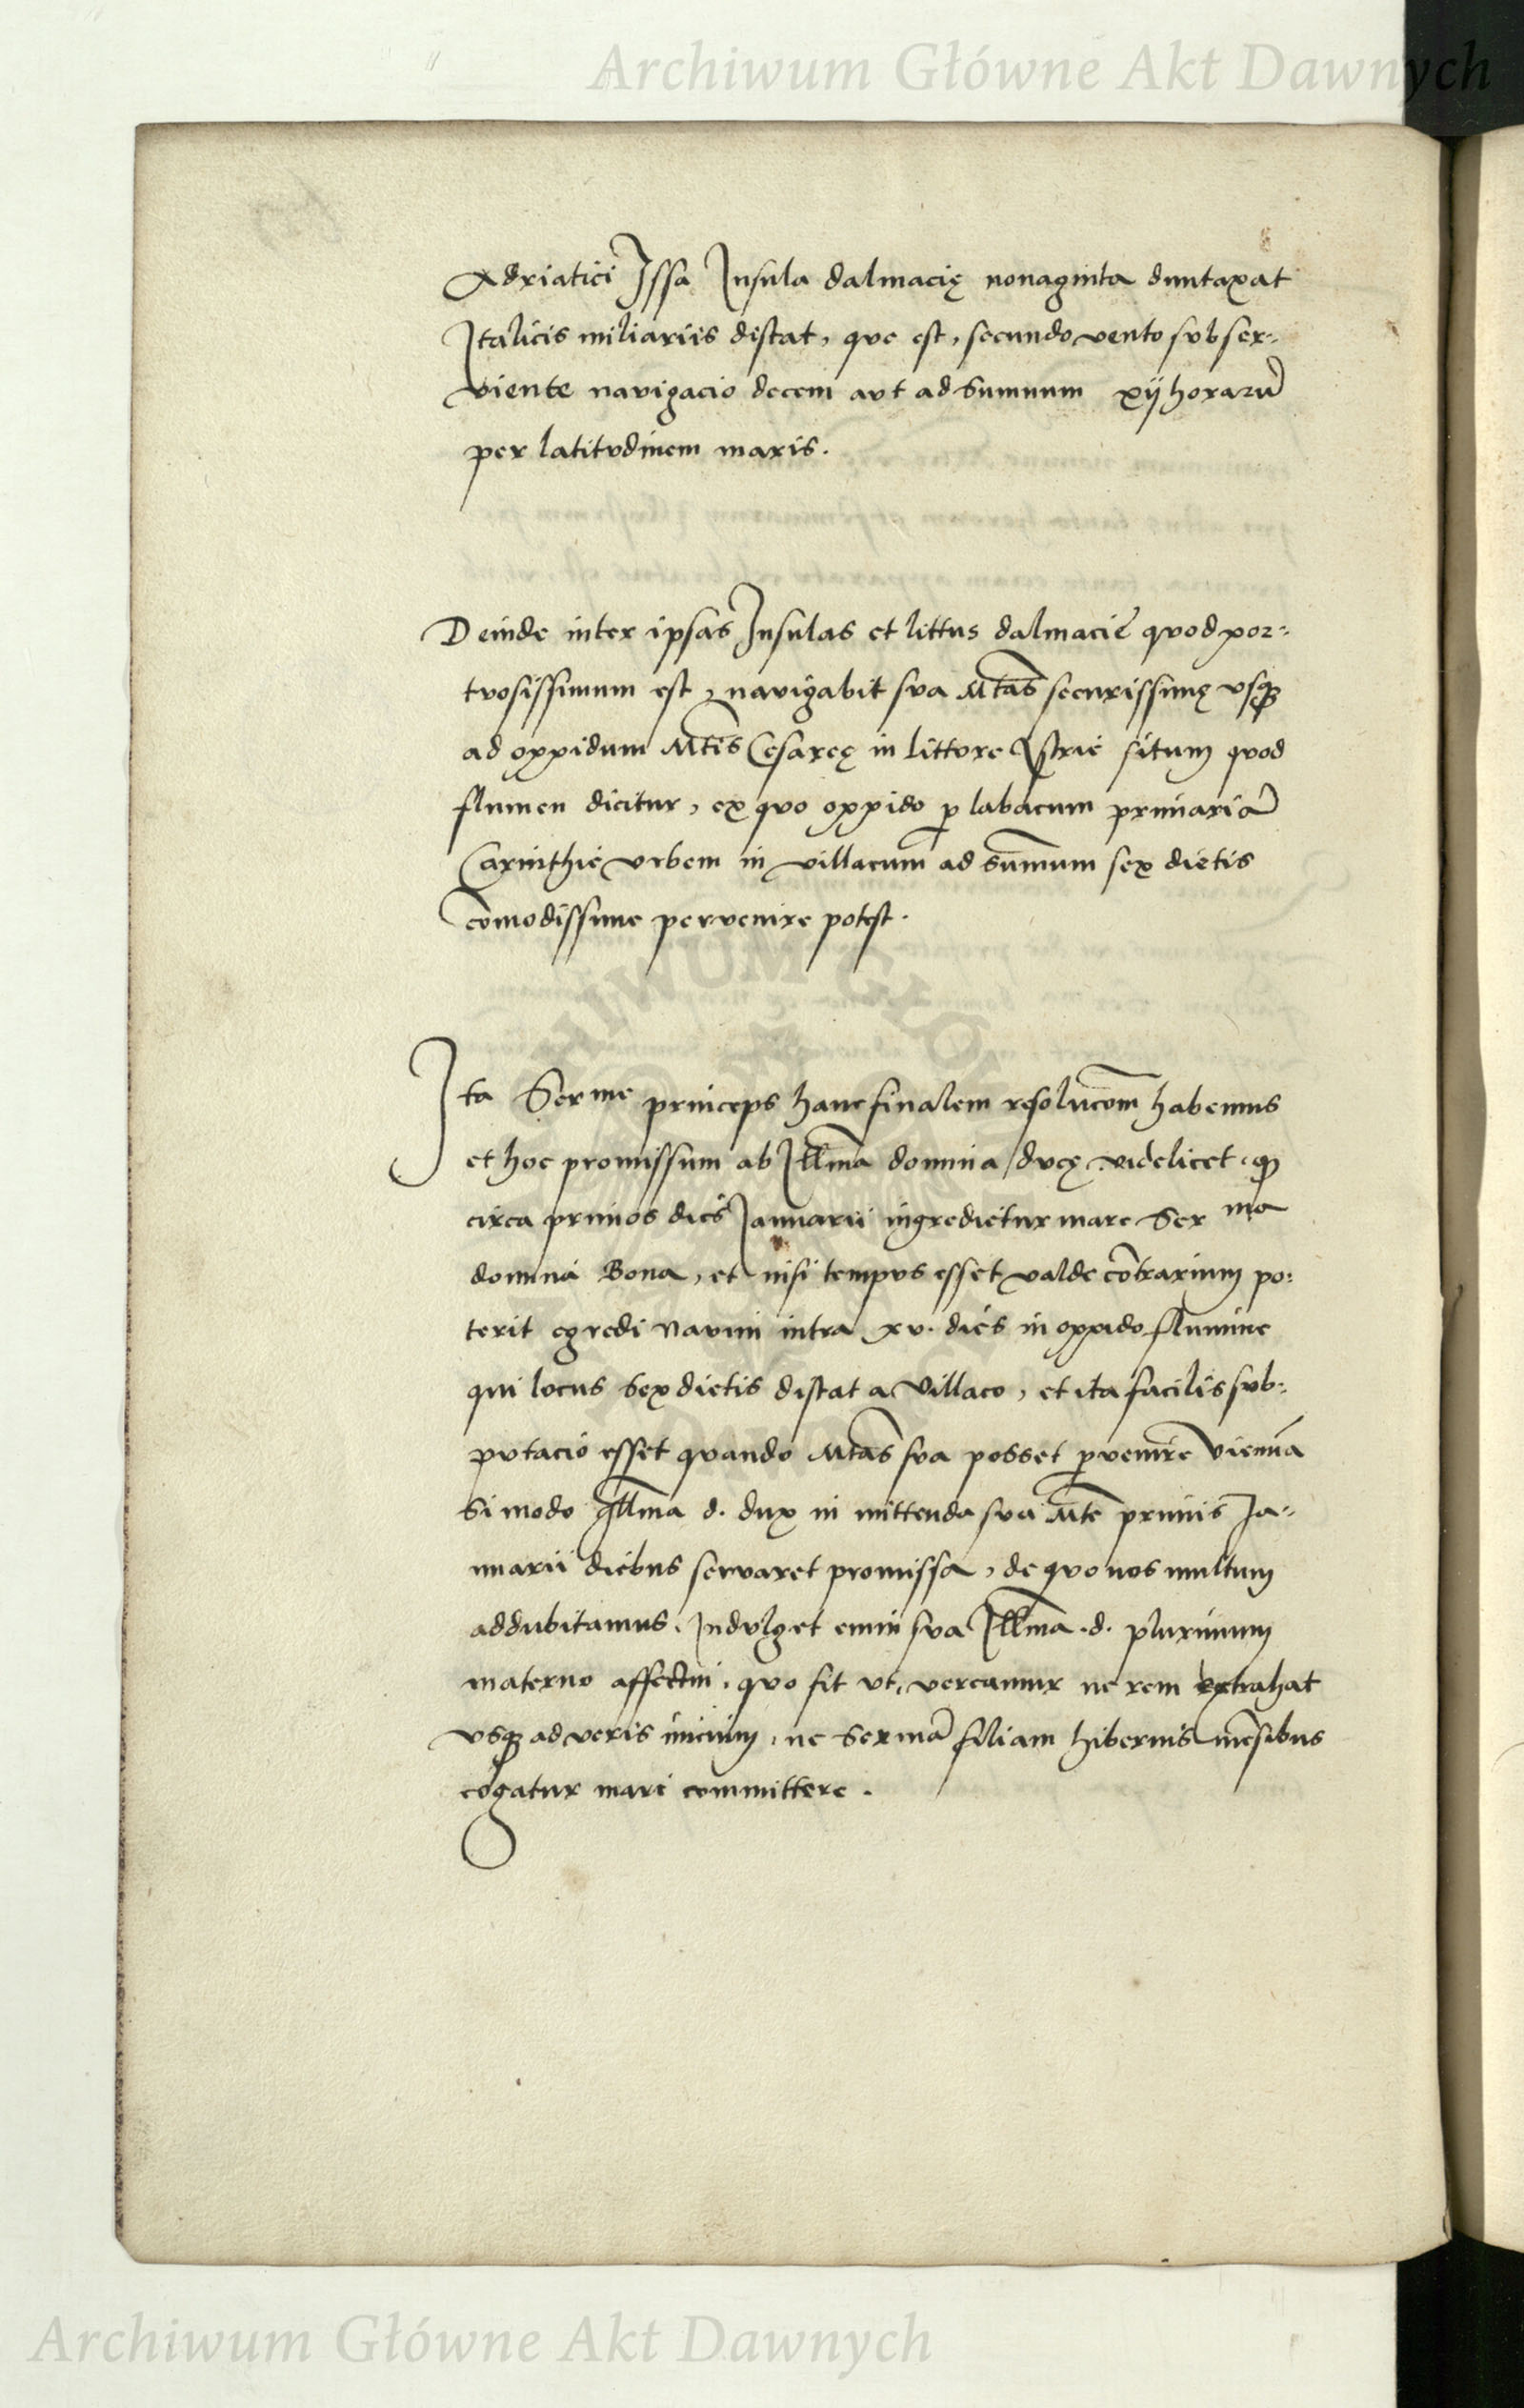 Archiwum Główne Akt Dawnych
Adriatici Issa Insula dalmacię nonaginta duntaxat
Italicis miliariis distat, que est, secundo vento subser-
viente navigacio decem aut ad summum xij horarũ
per latitudinem maris.
Deinde inter ipsas Insulas et littus dalmacie quod por-
tuosissimum est, navigabit sua Mtas securissimę usq3
ad oppidum Mtis Cesareę in littore Istrie situm quod
flumen dicitur, ex quo oppido p labacum primariã
Carinthie urbem in villacum ad summum sex dietis
cõmodissime pervenire potest.
Ita Serme princeps hanc finalem resolucõm habemus
et hoc promissum ab Illma domina duce videlicet, q3
circa primos dies Januarii ingredietur mare Ser ma
domina Bona, et nisi tempus esset valde cõtrarium po-
terit egredi navim intra xv. dies in oppido flumine
qui locus sex dietis distat a Villaco, et ita facilis sub-
putacio esset quando Mtas sua posset pvenire Viennã
si modo Illma d. dux in mittenda sua Mte primis Ja-
nuarii diebus servaret promissa, de quo nos multum
addubitamus. Indulget enim sua Illma .d. plurimum
materno affectui, quo fit ut, vereamur ne rem extrahat
usq3 ad veris inicium, ne Sermã filiam hibernis mẽsibus
cogatur mari committere.
Archiwum Główne Akt Dawnych